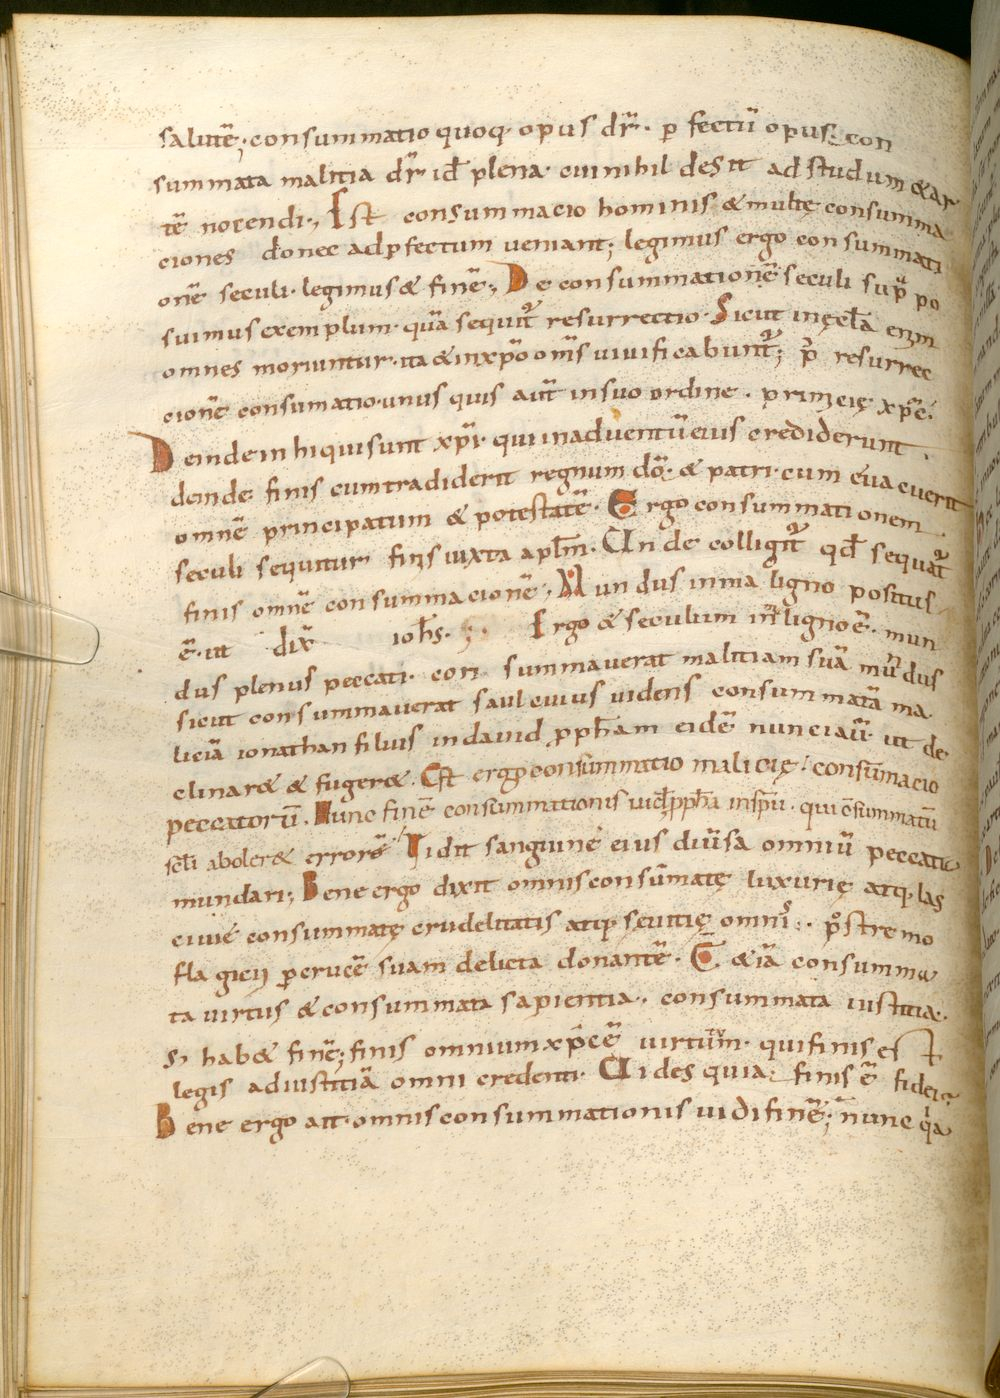 salutē; consummatio quoq; opus dr̄. p̄fectū opus; con
summata malitia dr̄ id̄ plena. cui nihil desit ad studium & ar
tē nocendi; Est consummacio hominis & multę consumma
ciones donec ad p̄fectum ueniant; legimus ergo consummati
onē seculi. legimus & finē; De consummationē seculi sup̄ po
suimus exemplum. quā sequit᷑ resurrectio. Sicut in ęcl̄a enim
omnes moriuntur. ita & in xp̄o om̄s uiuificabunt᷑; p̄ resurrec
cionē consumatio. unus quis aūt in suo ordine. primcię xp̄c.
Deinde in hi qui sunt xp̄i. qui in aduentū eius crediderunt.
deinde finis cum tradiderit regnum dō. & patri. cum euacuerit
omnē principatum & potestatē. Ergo consummationem
seculi sequitur finis iuxta apl̄m. Unde colligit᷑ qd̄ sequat᷑
finis omnē consummacionē; Mundus in maligno positus
ē. ut dix̄ ioh̄s. ; Ergo & seculum in maligno ē. mun
dus plenus peccati. con summauerat malitiam suā mundus
sicut consummauerat saul cuius uidens consummatā ma
liciā ionathan filius in dauid pph̄am eidē nunciaūt ut de
clinar& & fuger&. Est ergo consummatio malicię. consūmacio
peccatorū. Nunc finē consummationis uid̄ pph̄a in sp̄u. qui c̄summatū
scl̄i aboler& errorē Vidit sanguinē eius diuīsa omniū peccata
mundari; Bene ergo dixit omnis consūmatę luxurię atq; las
ciuię consummatę crudelitatis atq; seuitię omnis. postremo
flagicii p̄ crucē suam delicta donantē. E &iā consumma
ta uirtus & consummata sapientia. consummata iustitia.
Si hab& finē; finis omnium xp̄c ē uirtutum. qui finis est
legis ad iustitiā omni credenti. Uides quia finis ē fidei;
Bene ergo ait. omnis consummationis uidi finē; nunc qa